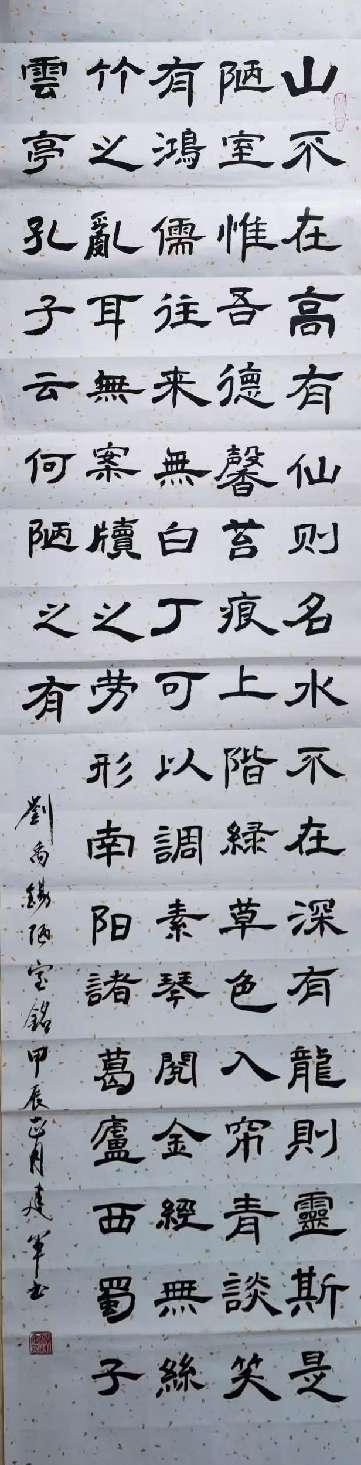 山不在高有仙则名水不在深有龍則靈斯是
陋室惟吾德馨苔痕上階緑草色入帘青談笑
有鴻儒往来無白丁可以調素琴閲金經無絲
竹之亂耳無案牘之劳形南阳諸葛廬西蜀子
雲亭孔子云何陋之有
劉禹錫陋室銘甲辰正月建军书